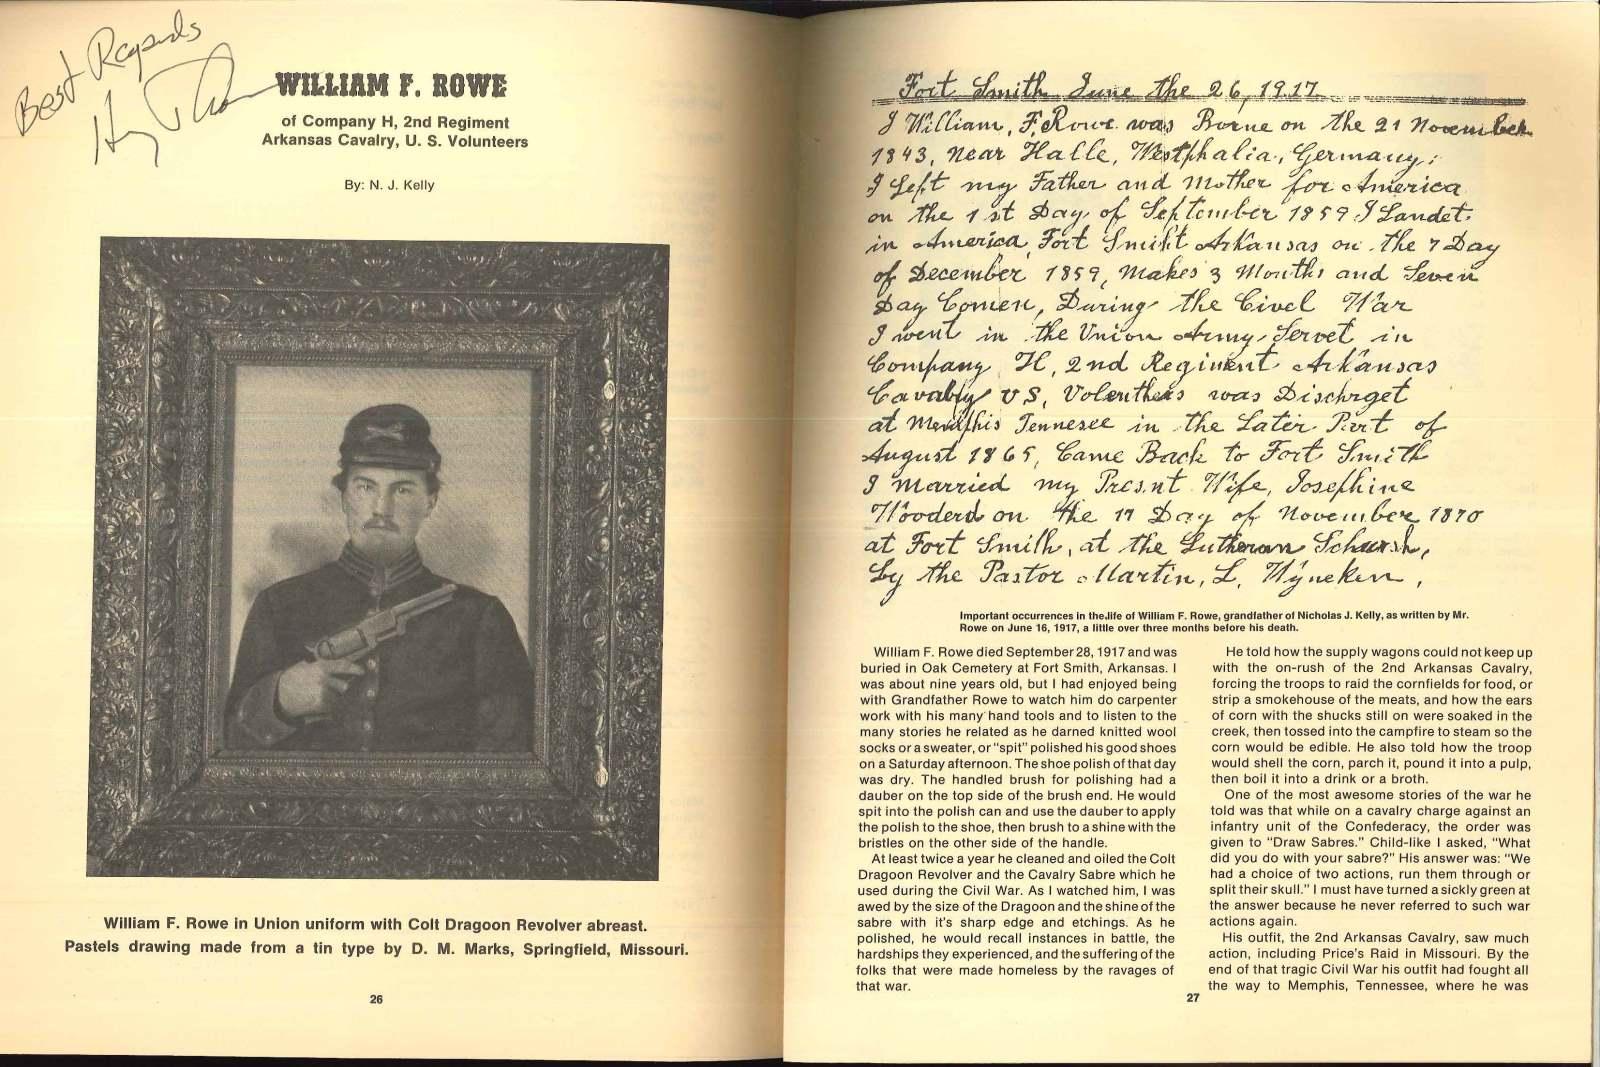 Best Regards
WILLIAM F. ROWE
of Company H, 2nd Regiment
Arkansas Cavalry, U. S. Volunteers
By: N. J. Kelly
William F. Rowe in Union uniform with Colt Dragoon Revolver abreast.
Pastels drawing made from a tin type by D. M. Marks, Springfield, Missouri.
26
Fort Smith June the 26, 1917
I William, F, Rowe was Borne on the 21 November
1843, near Halle, Westphalia, Germany;
I Left my Father and Mother for America
on the 1st Day of September 1859 I Landet
in America Fort Smiht Arkansas on the 7 Day
of December 1859, makes 3 Months and Seven
Day Comen, During the Civel War
I went in the Union Army Servet in
Company H, 2nd Regiment Arkansas
Cavalry US, Volentheis was Dischrget
at Memphis Tennesee in the Later Part of
August 1865, Came Back to Fort Smith
I married my Presnt Wife, Josephine
Wooderd on the 17 Day of November 1870
at Fort Smith, at the Lutheran Schursh,
by the Pastor Martin, L, Wyneken,
Important occurrences in the life of William F. Rowe, grandfather of Nicholas J. Kelly, as written by Mr.
Rowe on June 16, 1917, a little over three months before his death.
William F. Rowe died September 28, 1917 and was
buried in Oak Cemetery at Fort Smith, Arkansas. I
was about nine years old, but I had enjoyed being
with Grandfather Rowe to watch him do carpenter
work with his many hand tools and to listen to the
many stories he related as he darned knitted wool
socks or a sweater, or "spit" polished his good shoes
on a Saturday afternoon. The shoe polish of that day
was dry. The handled brush for polishing had a
dauber on the top side of the brush end. He would
spit into the polish can and use the dauber to apply
the polish to the shoe, then brush to a shine with the
bristles on the other side of the handle.
At least twice a year he cleaned and oiled the Colt
Dragoon Revolver and the Cavalry Sabre which he
used during the Civil War. As I watched him, I was
awed by the size of the Dragoon and the shine of the
sabre with it's sharp edge and etchings. As he
polished, he would recall instances in battle, the
hardships they experienced, and the suffering of the
folks that were made homeless by the ravages of
that war.
He told how the supply wagons could not keep up
with the on-rush of the 2nd Arkansas Cavalry,
forcing the troops to raid the cornfields for food, or
strip a smokehouse of the meats, and how the ears
of corn with the shucks still on were soaked in the
creek, then tossed into the campfire to steam so the
corn would be edible. He also told how the troop
would shell the corn, parch it, pound it into a pulp,
then boil it into a drink or a broth.
One of the most awesome stories of the war he
told was that while on a cavalry charge against an
infantry unit of the Confederacy, the order was
given to "Draw Sabres." Child-like I asked, "What
did you do with your sabre?" His answer was: "We
had a choice of two actions, run them through or
split their skull." I must have turned a sickly green at
the answer because he never referred to such war
actions again.
His outfit, the 2nd Arkansas Cavalry, saw much
action, including Price's Raid in Missouri. By the
end of that tragic Civil War his outfit had fought all
the way to Memphis, Tennessee, where he was
27